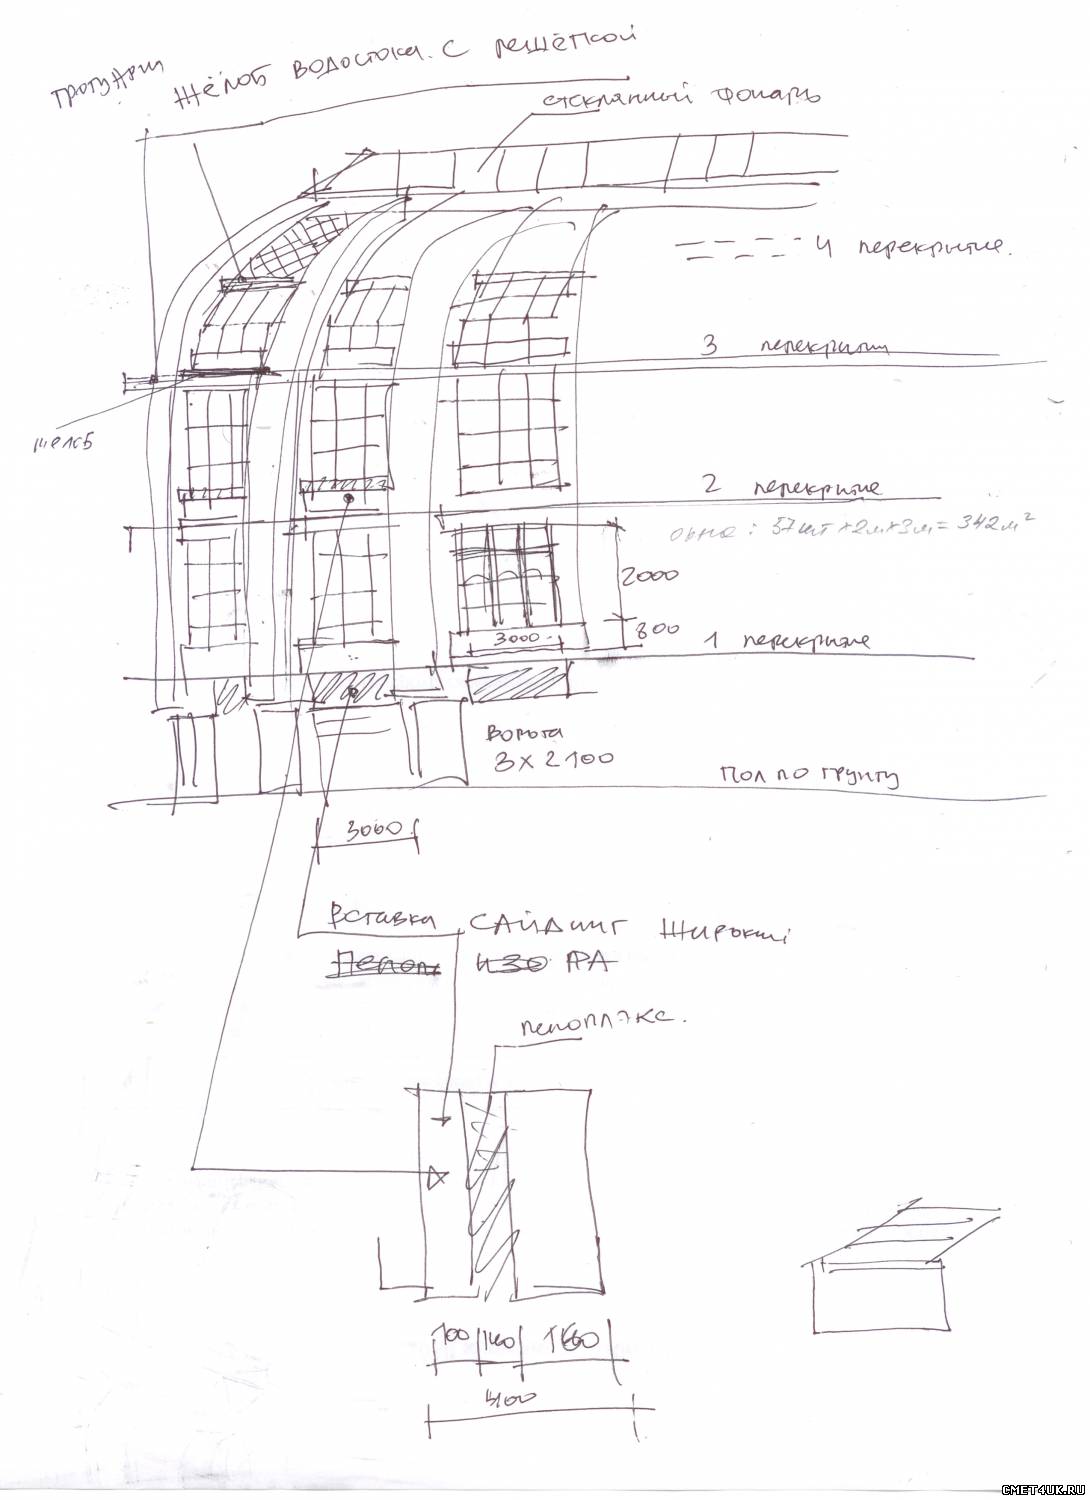 тротуары
жёлоб водостока с решёткой
стеклянный фонарь
4 перекрытие.
3 перекрытия
желоб
2 перекрытие
окна: 57шт×2м×3м=342м²
2000
800
3000
1 перекрытие
Ворота
3×2100
Пол по грунту
3000
Вставка сайдинг широкий
пеноплэкс.
100
400
CMET4UK.RU